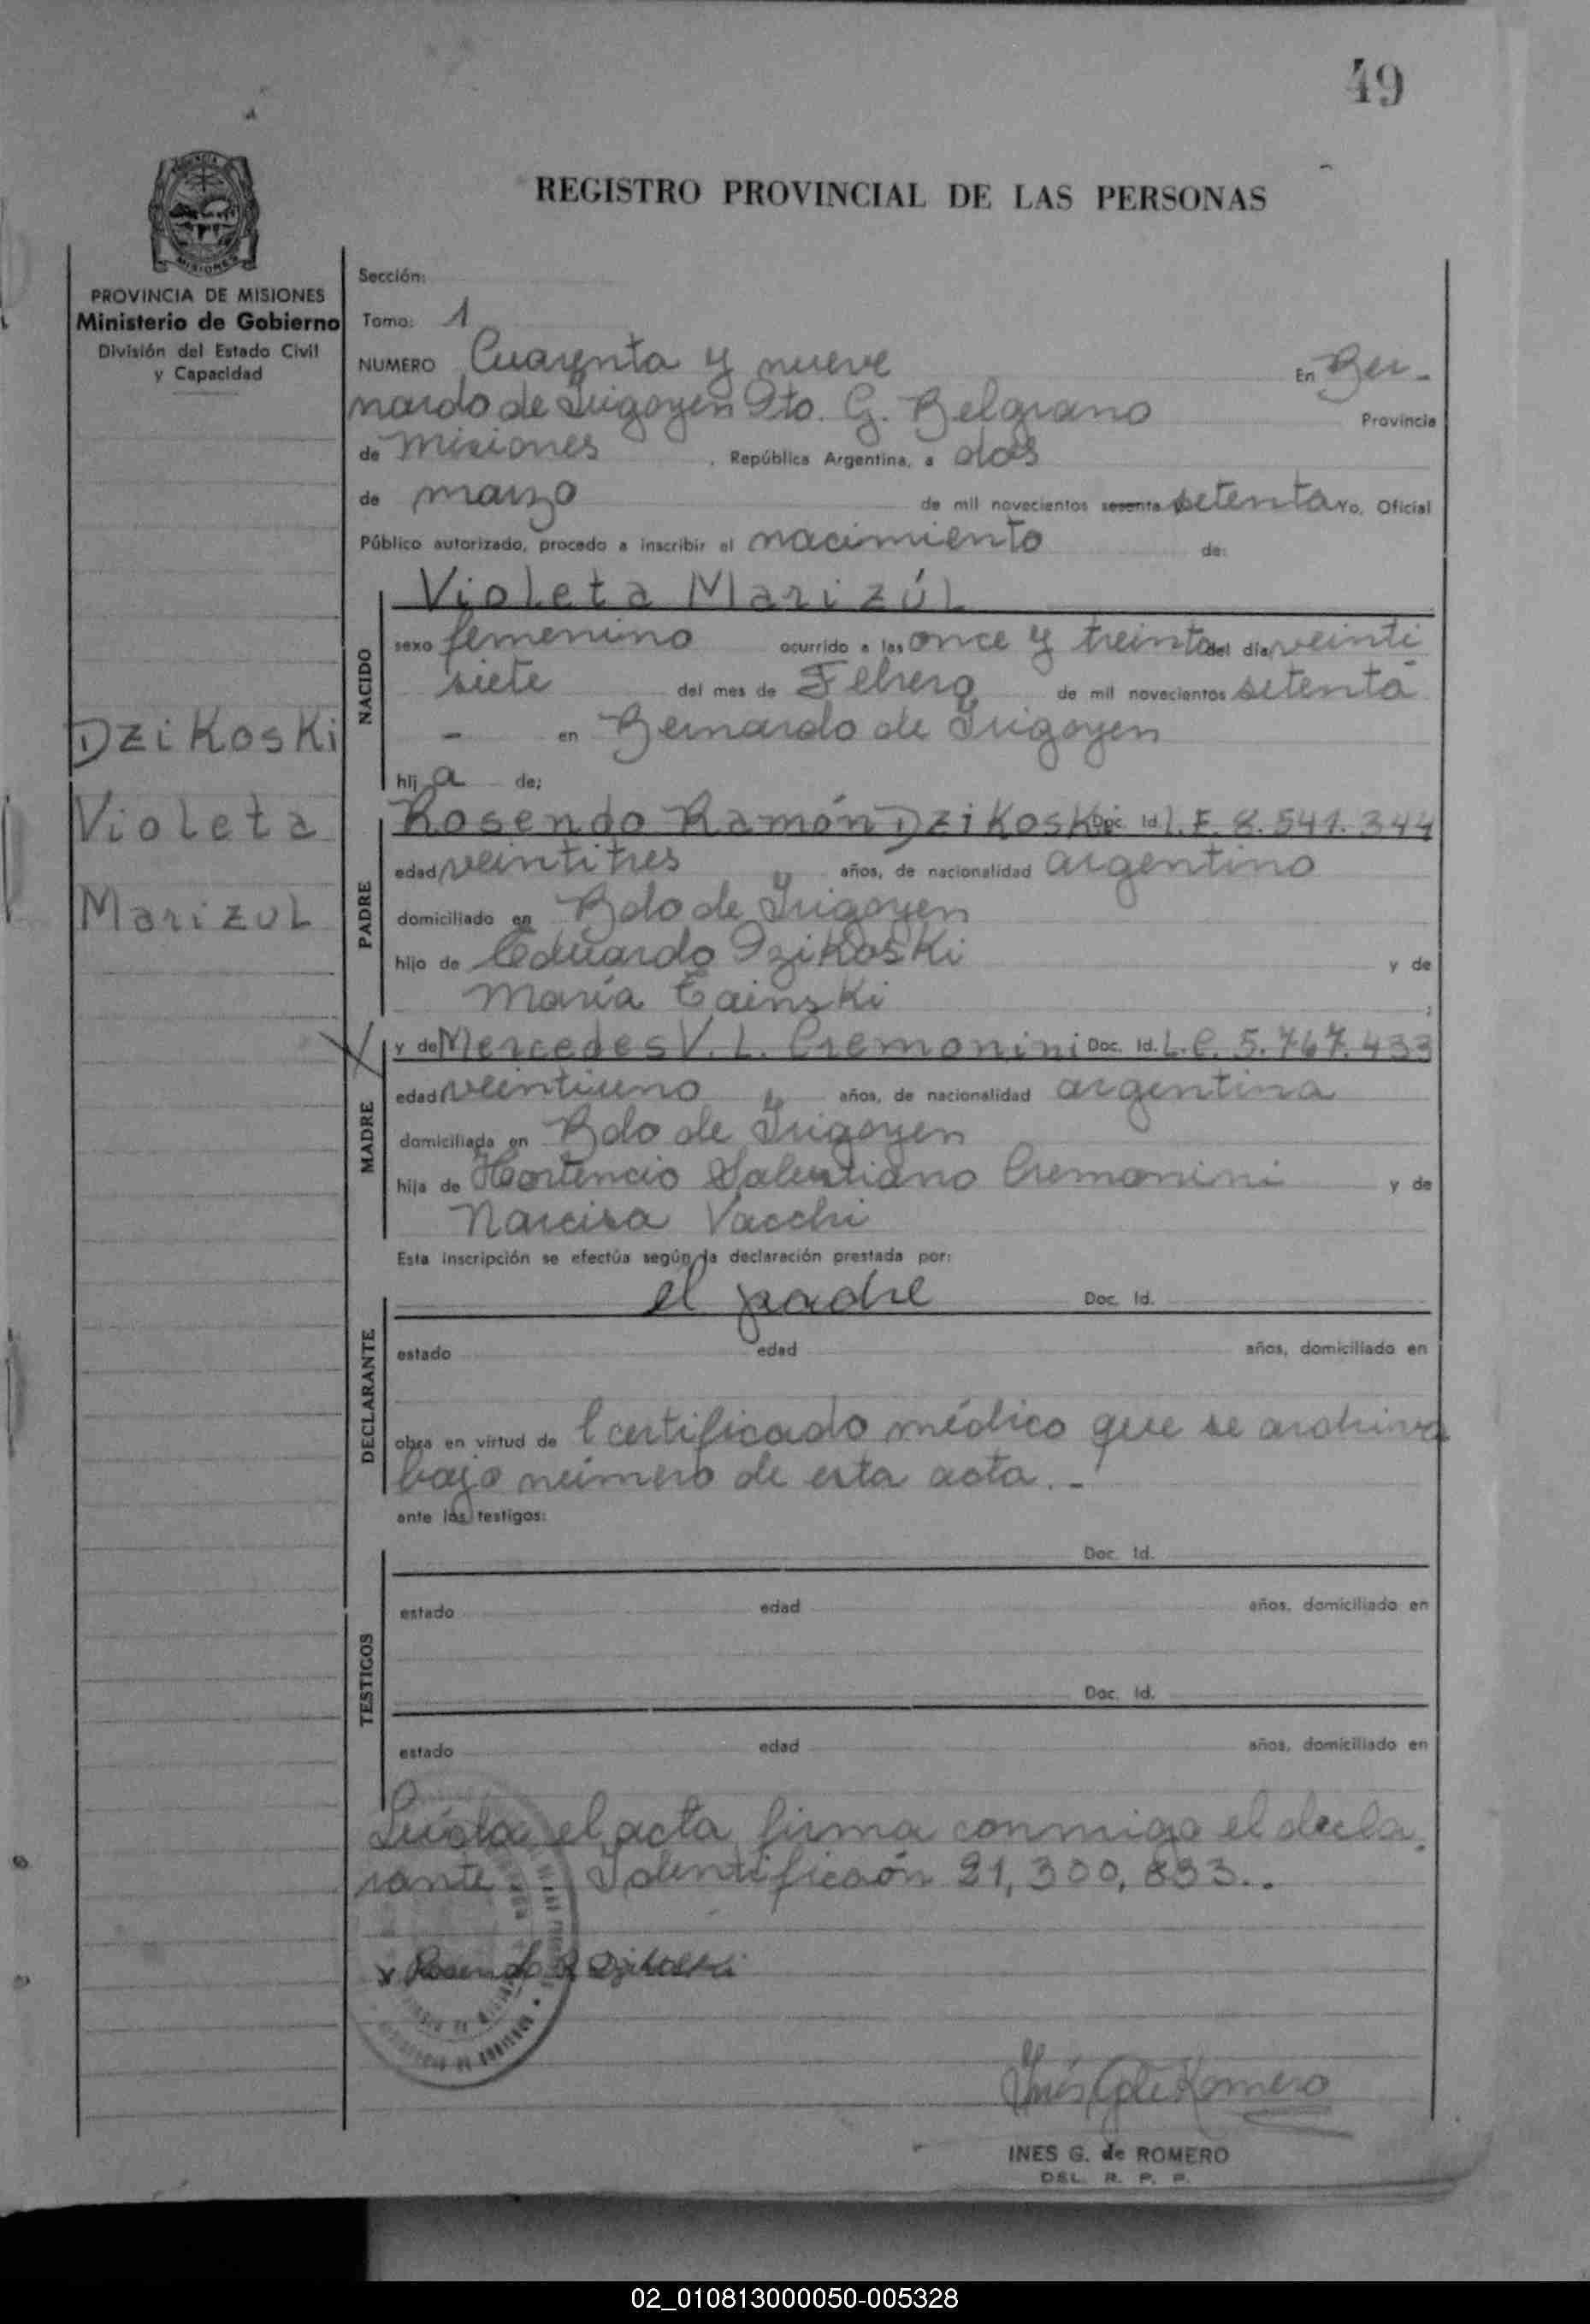 49
REGISTRO PROVINCIAL DE LAS PERSONAS
MISIONES
PROVINCIA DE MISIONES
Ministerio de Gobierno
División del Estado Civil
y Capacidad
Dzikoski
Violeta
Marizul
Sección:
Tomo: 1
NUMERO Cuarenta y nueve En Ber-
nardo de Irigoyen Dto. G. Belgrano Provincia
de Misiones , República Argentina, a dos
de marzo de mil novecientos sesenta setenta Yo, Oficial
Público autorizado, procedo a inscribir el nacimiento de:
NACIDO
Violeta Marizúl
sexo femenino ocurrido a las once y treinta del día veinti
siete del mes de Febrero de mil novecientos setenta
- en Bernardo de Irigoyen
hij a de;
PADRE
Rosendo Ramón Dzikoski Doc. Id. L.E. 8.541.344
edad veintitres años, de nacionalidad argentino
domiciliado en Bdo de Irigoyen
hijo de Eduardo Dzikoski y de
María Cainski ;
MADRE
y de Mercedes V. L. Cremonini Doc. Id. L.C. 5.767.433
edad veintiuno años, de nacionalidad argentina
domiciliada en Bdo de Irigoyen
hija de Hortencio Salustiano Cremonini y de
Narcisa Vacchi
Esta inscripción se efectúa según la declaración prestada por:
DECLARANTE
el padre Doc. Id.
estado edad años, domiciliado en
obra en virtud de l certificado médico que se archiva
bajo número de esta acta.-
ante los testigos:
TESTIGOS
Doc. Id.
estado edad años, domiciliado en
Doc. Id.
estado edad años, domiciliado en
Leída el acta firma conmigo el decla
rante. Identificación 21,300,833..
x Rosendo R Dzikoski
Inés G de Romero
INES G. de ROMERO
DEL. R. P. P.
02_010813000050-005328